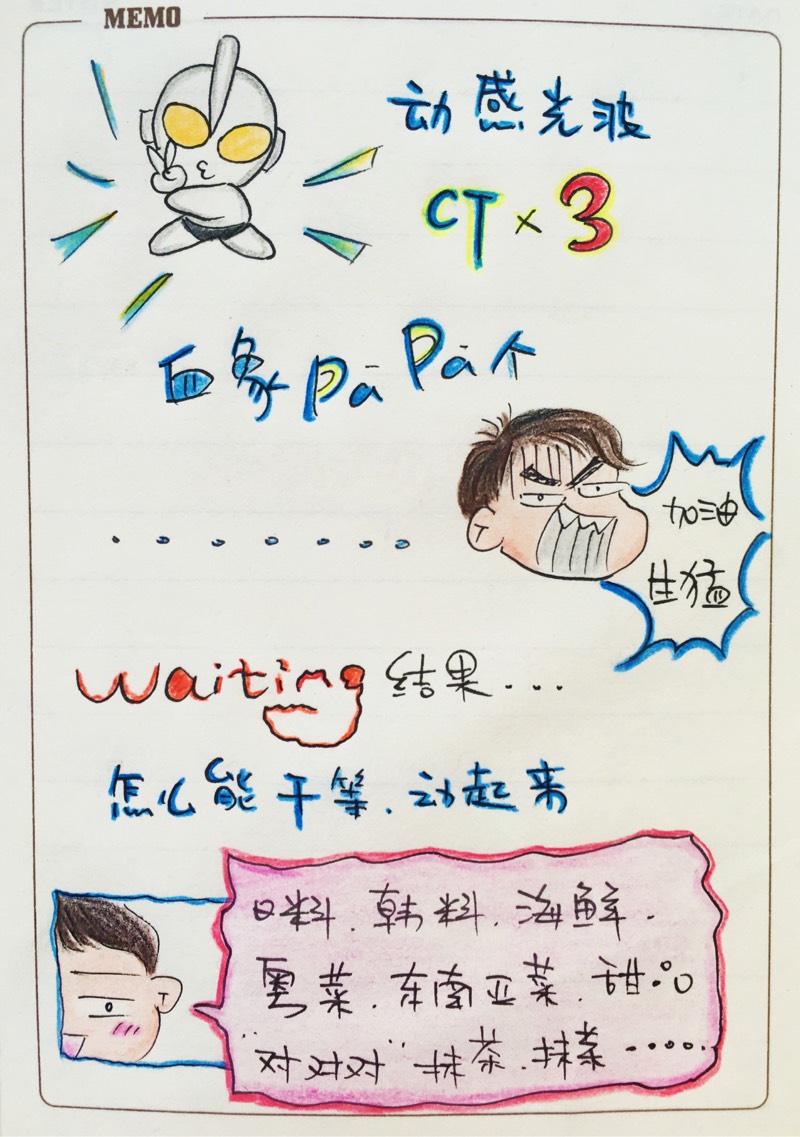 MEMO
动感光波
CT×3
血象pāpā个
.......
加油
生猛
waiting结果...
怎么能干等.动起来
日料.韩料.海鲜.
粤菜.东南亚菜.甜品
"对对对"抹茶.抹茶......